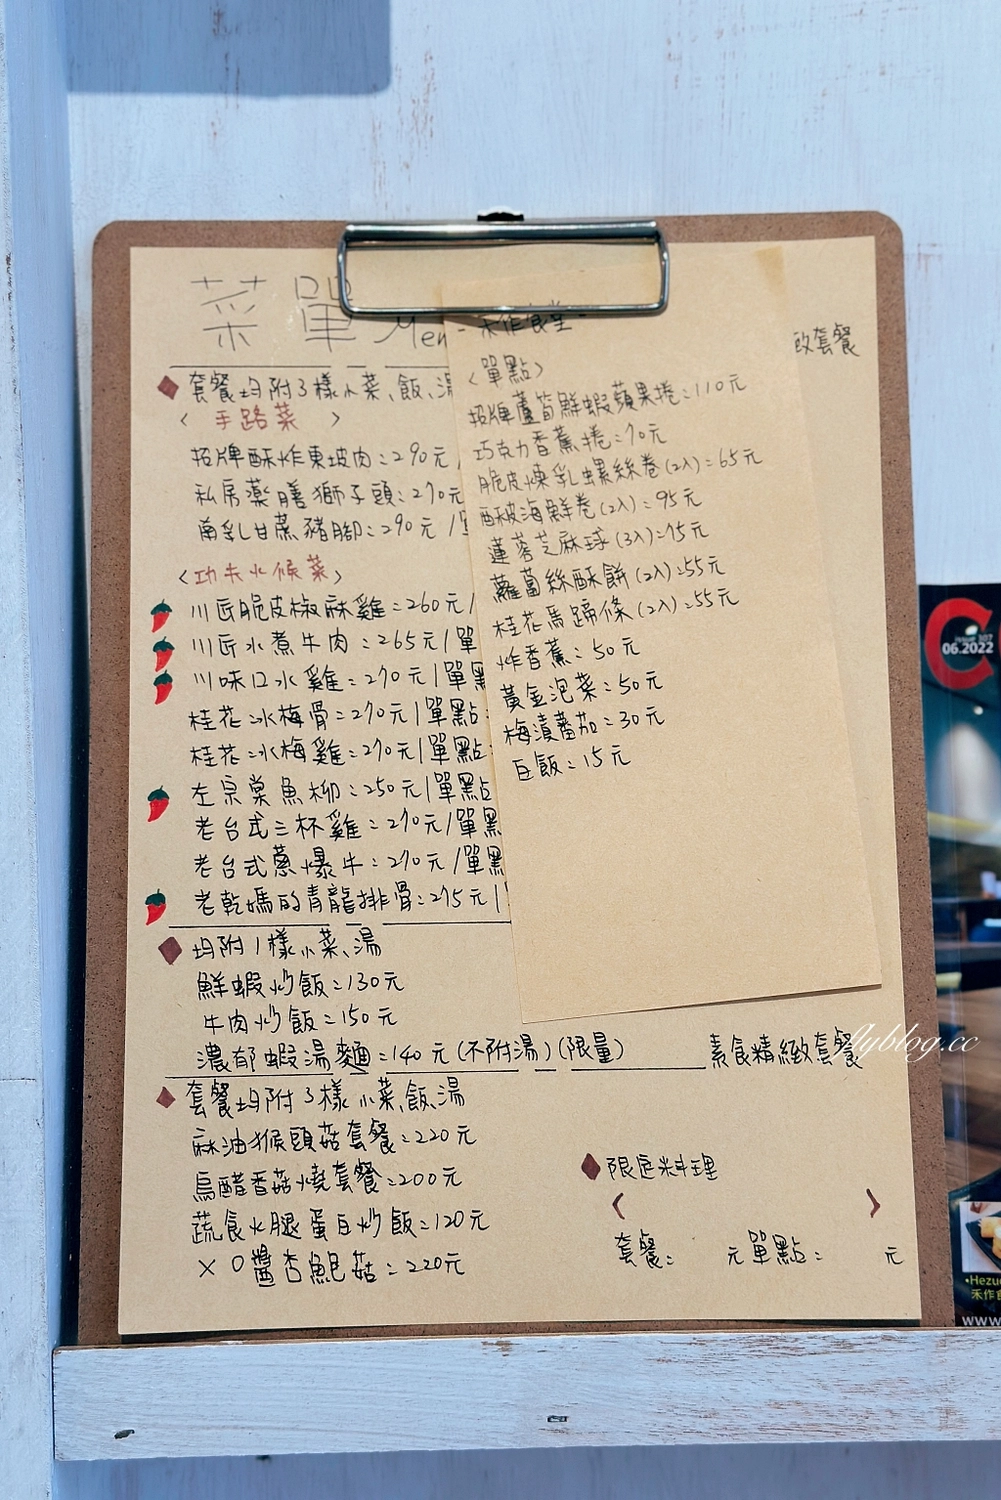 菜單 Men
套餐均附3樣小菜、飯、湯
〈手路菜〉
招牌酥炸東坡肉=290元/
私房藥膳獅子頭=270元
南乳甘蔗豬腳=290元/
〈功夫火候菜〉
川匠脆皮椒麻雞=260元/
川匠水煮牛肉=265元/單
川味口水雞=270元/單點
桂花冰梅骨=270元/單點
桂花冰梅雞=270元/單點
左宗棠魚柳=250元/單點
老台式三杯雞=270元/單點
老台式蔥爆牛=270元/單點
老乾媽的青龍排骨=275元/
均附1樣小菜、湯
鮮蝦炒飯=130元
牛肉炒飯=150元
濃郁蝦湯麵=140元(不附湯)(限量)
素食精緻套餐
套餐均附3樣小菜、飯、湯
麻油猴頭菇套餐=220元
烏醋香菇燒套餐=200元
蔬食火腿蛋白炒飯=120元
XO醬杏鮑菇=220元
限定料理
〈 〉
套餐: 元 單點: 元
-禾作食堂-
〈單點〉
招牌蘆筍鮮蝦蘋果捲=110元
巧克力香蕉捲=70元
脆皮煉乳螺絲卷(2入)=65元
酥皮海鮮卷(2入)=95元
蓮蓉芝麻球(3入)=75元
蘿蔔絲酥餅(2入)=55元
桂花馬蹄條(2入)=55元
炸香蕉=50元
黃金泡菜=50元
梅漬蕃茄=30元
白飯=15元
套餐
flyblog.cc
issue 107
06.2022
•Hezuo
禾作食
www.